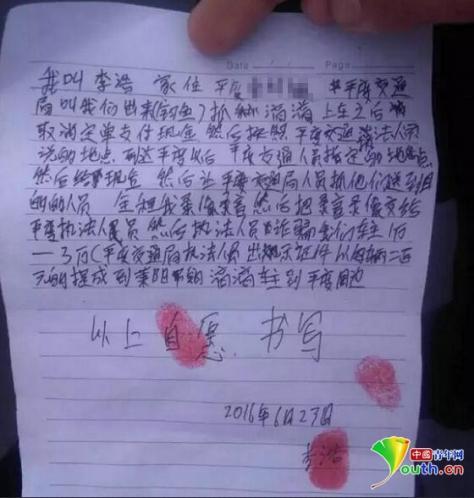 Date
Page
我叫 李浩 家住 平度 平度交通
局叫我们出来(钓鱼)抓 滴滴 上车之后
取消定单支付现金 然后按照平度交通 法人员
说的地点 到达平度以后 平度交通人员指定的地点
然后给现金 然后让平度交通局人员抓他们
的人员 全程我录像录音 然后把录音录像交给
平度执法人员 然后执法人员诈骗 车主
一3万(平度交通局执法人员出示证件
元的提成 到莱阳 滴滴车主到平度周边
以上自愿 书写
2016年6月23日
李浩
中国青年网
youth.cn